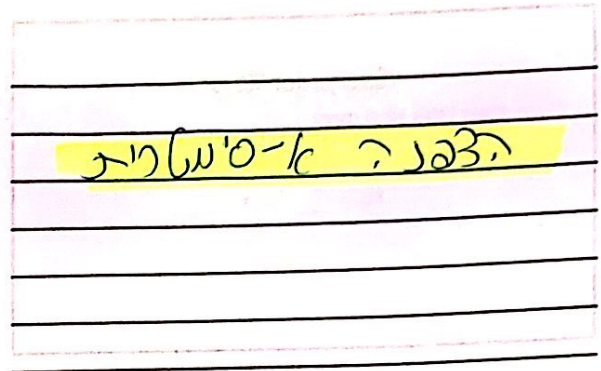 הצפנה א-סימטרית